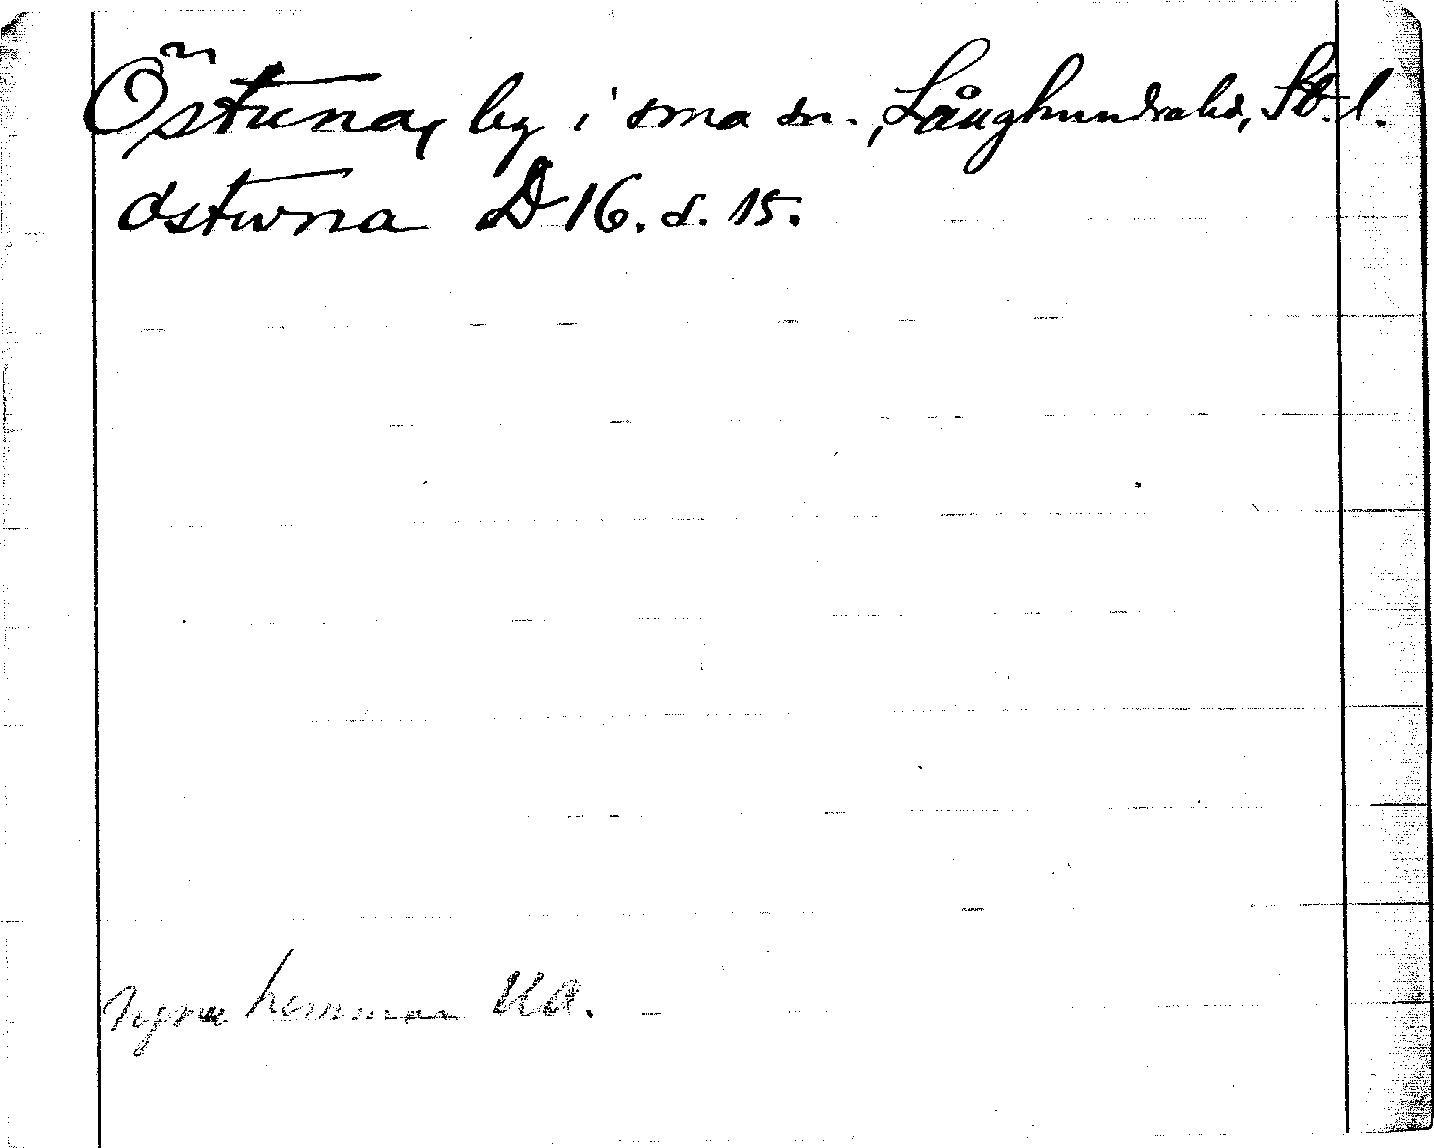 Östuna, by i sma sn., Långhundra hd, St. l.
østwna D 16. s. 15.
hemman KA.